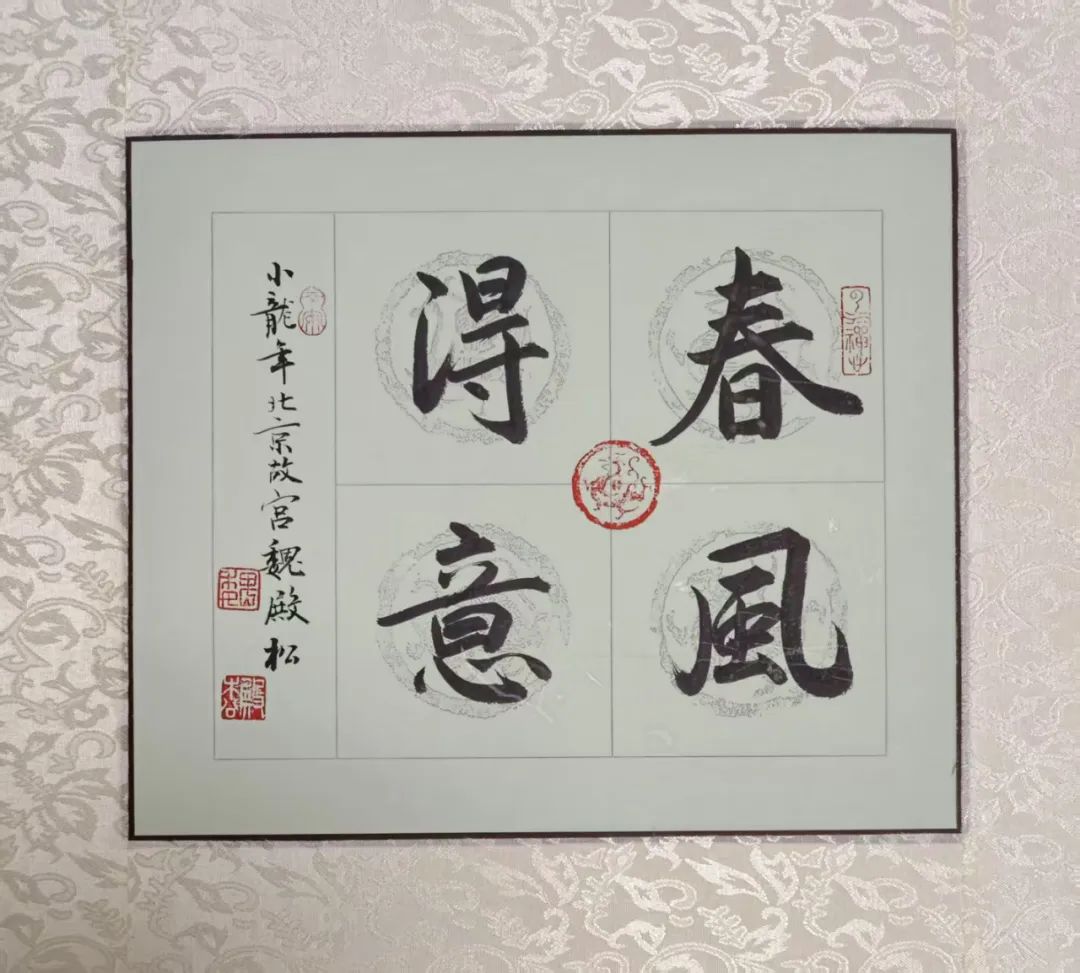 春風
得意
小龍年北京故宮魏殿松